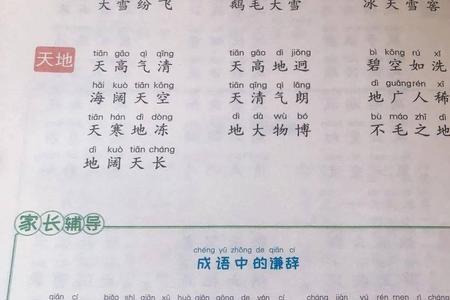 大雪纷飞 鹅毛大雪 冰天雪窖
天地
tiān gāo qì qīng tiān gāo dì jiǒng bì kōng rú xǐ
天高气清 天高地迥 碧空如洗
hǎi kuò tiān kōng tiān qīng qì lǎng dì guǎng rén xī
海阔天空 天清气朗 地广人稀
tiān hán dì dòng dì dà wù bó bù máo zhī dì
天寒地冻 地大物博 不毛之地
dì kuò tiān cháng
地阔天长
家长辅导
chéng yǔ zhōng de qiān cí
成语中的谦辞
qiān cí biǎo shì qiān xū